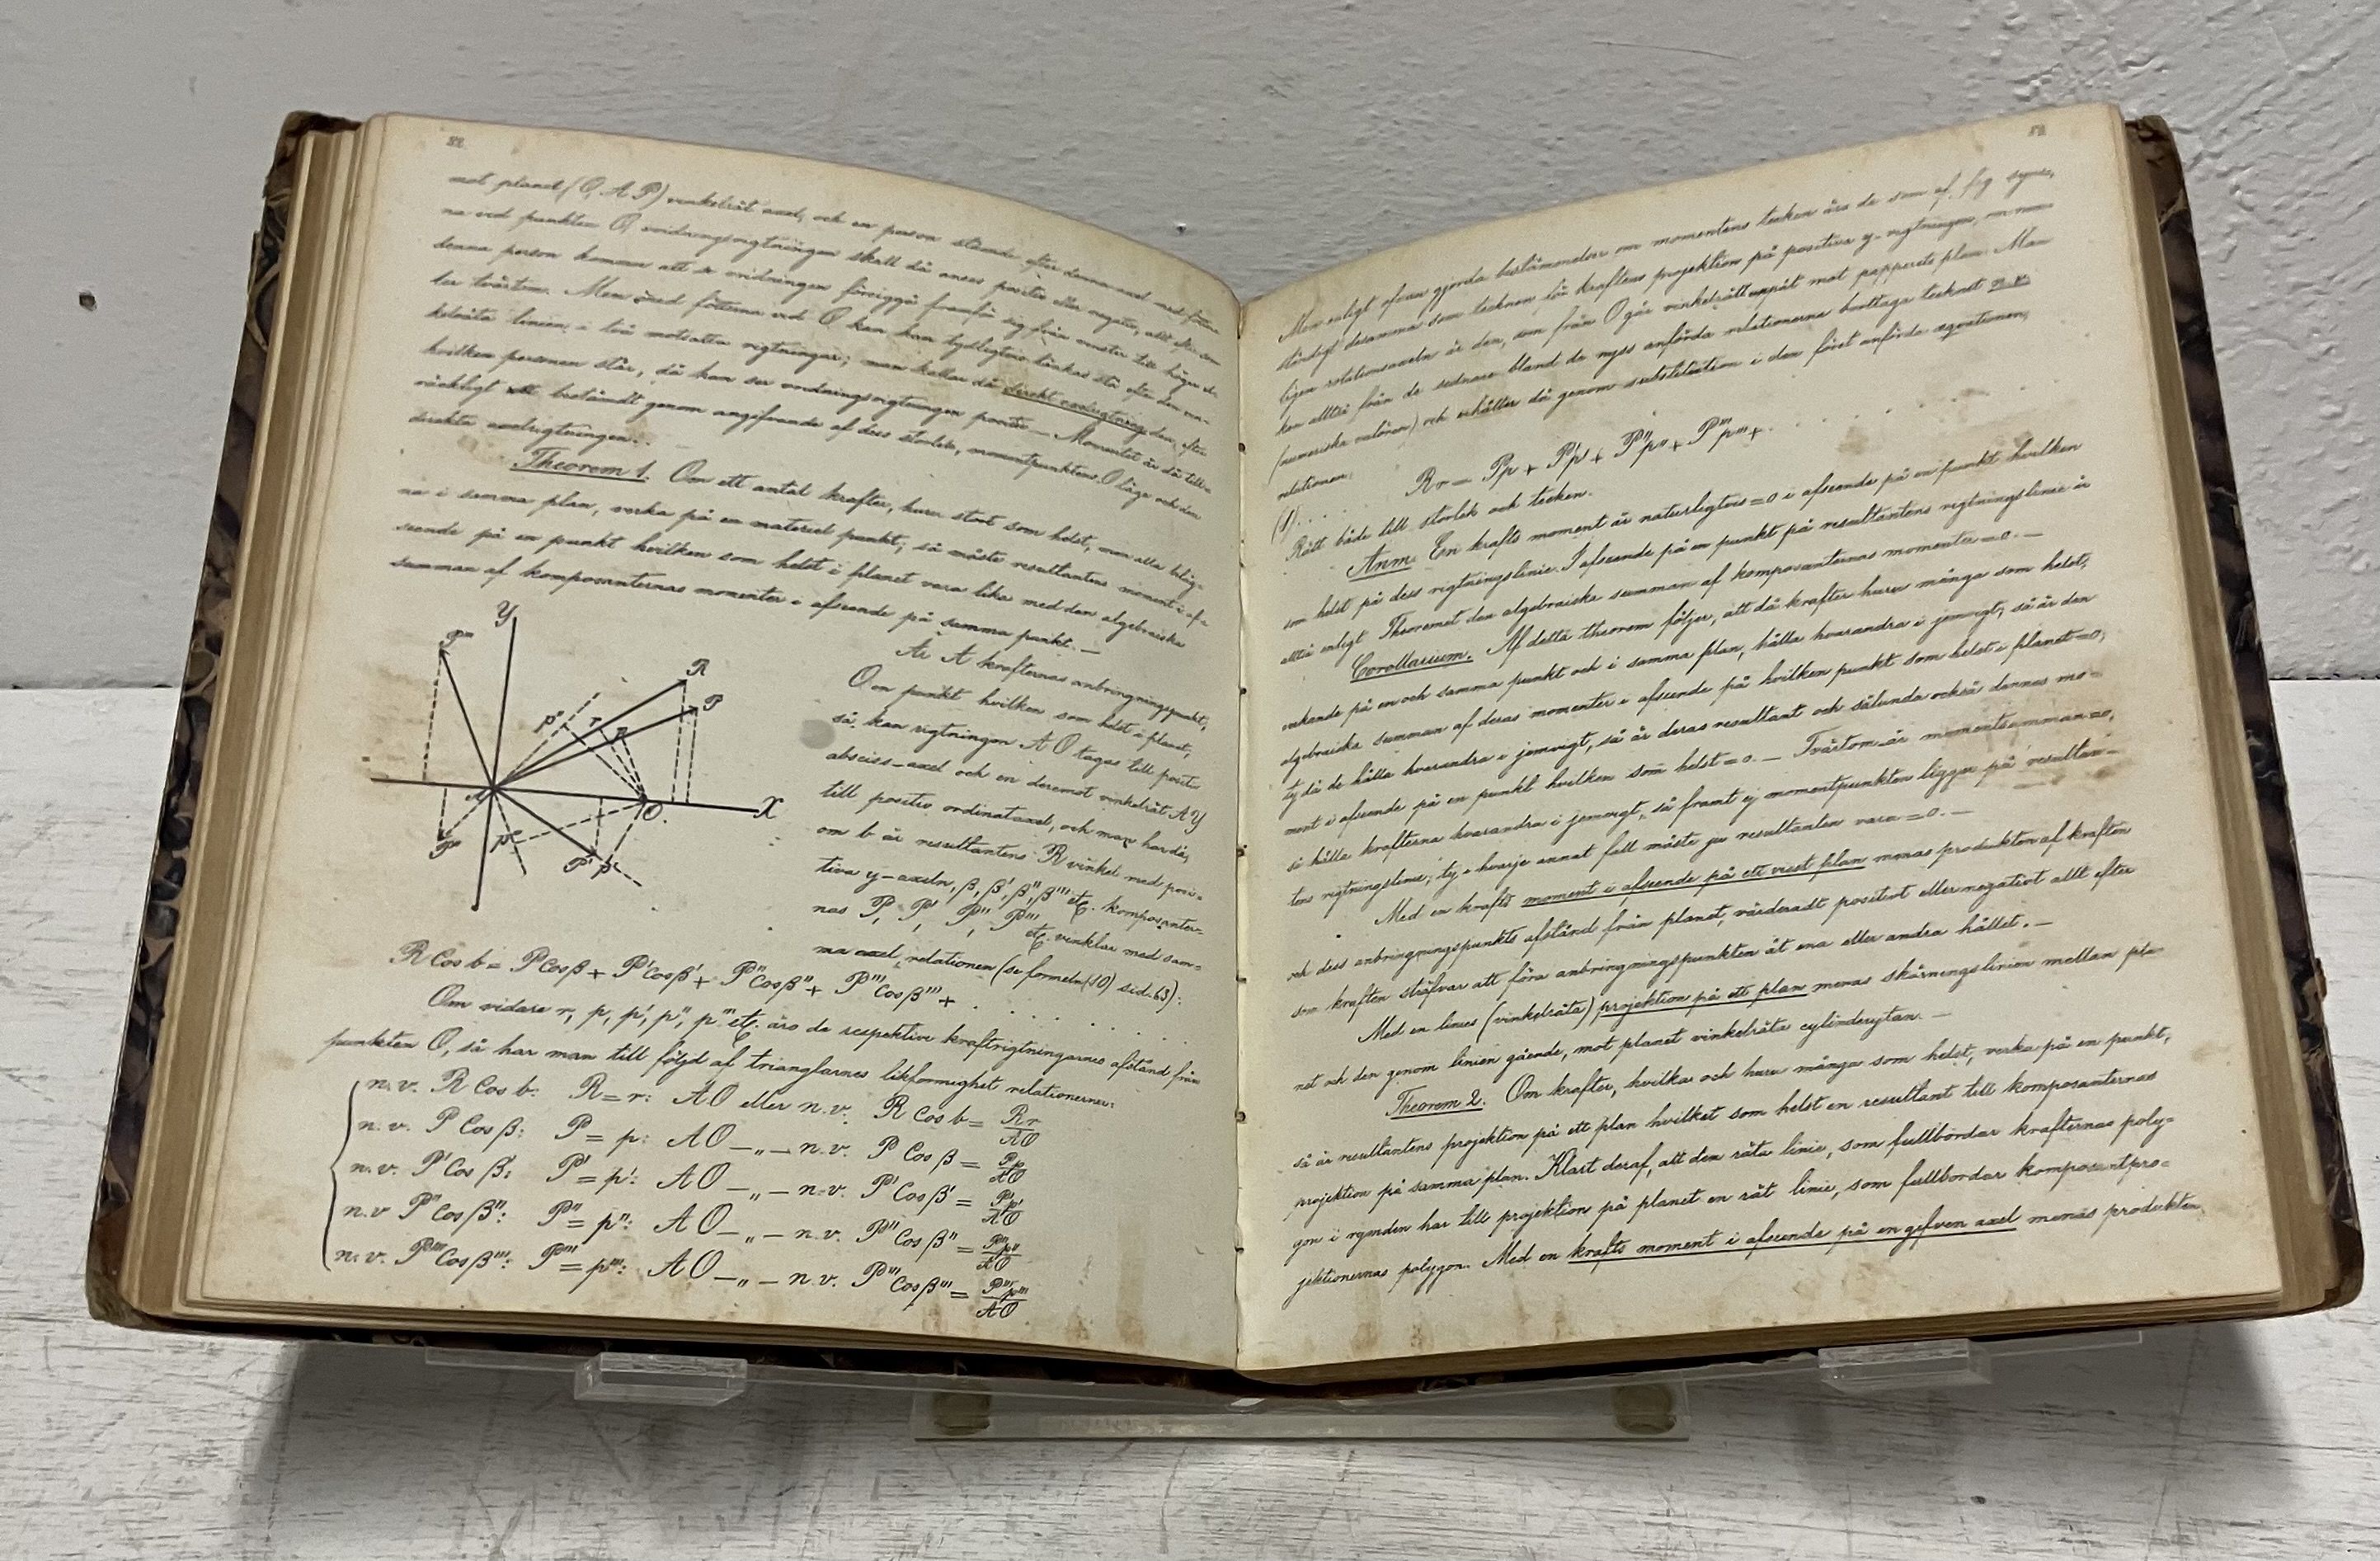 mot planet (O, A P) vinkelrät axel, och en person stående efter denna axel med fötter-
na vid punkten O, vridningsrigtningen skall då anses positiv eller negativ, allt efter som
denna person kommer att se vridningen föregå framför sig från venster till höger el-
ler tvärtom. Men med fötterna vid O kan han tydligtvis tänkas stå efter den vin-
kelräta linien i två motsatta rigtningar; man kallar då direkt axelrigtning den, efter
hvilken personen står, då han ser vridningsrigtningen positiv. — Momentet är då till-
räckligt bestämdt genom angifvande af dess storlek, momentpunktens O läge och den
direkta axelrigtningen.
Theorem 1. Om ett antal krafter, huru stort som helst, men alla belig-
na i samma plan, verka på en materiel punkt, så måste resultantens moment i af-
seende på en punkt hvilken som helst i planet vara lika med den algebraiska
summan af komposanternas momenter i afseende på samma punkt. —
Y
P'''
R
P
p''
r
p
A
O.
X
P''
p'''
P'
p'
Är A krafternas anbringningspunkt,
O en punkt hvilken som helst i planet,
så kan rigtningen A O tagas till positiv
absciss-axel och en deremot vinkelrät A Y
till positiv ordinataxel, och man har då,
om b är resultantens R vinkel med posi-
tiva y-axeln, β, β', β'', β''' etc. komposanter-
nas P, P', P'', P''' etc. vinklar med sam-
ma axel, relationen (se formeln (10) sid. 63):
R Cos b = P Cos β + P' Cos β' + P'' Cos β'' + P''' Cos β''' + . . . . . . .
Om vidare r, p, p', p'', p''' etc. äro de respektive kraftrigtningarnes afstånd från
punkten O, så har man till följd af trianglarnes likformighet relationerna:
n.v. R Cos b: R = r: AO eller n.v. R Cos b = Rr/AO
n.v. P Cos β: P = p: AO — „ — n.v. P Cos β = Pp/AO
n.v. P' Cos β': P' = p': AO — „ — n.v. P' Cos β' = P'p'/AO
n.v P'' Cos β'': P'' = p'': AO — „ — n.v. P'' Cos β'' = P''p''/AO
n.v. P''' Cos β''': P''' = p''': AO — „ — n.v. P''' Cos β''' = P'''p'''/AO
Men enligt ofvan gjorda bestämmelser om momentens tecken äro de som af fig. synes,
ständigt desamma som tecknen för kraftens projektion på positiva y-rigtningen, om nem-
ligen rotationsaxeln är den, som från O går vinkelrätt uppåt mot papperets plan. Man
kan alltså från de sednare bland de nyss anförda relationerna borttaga tecknet n.v.
(numeriska valören) och erhåller då genom substitution i den först anförda eqvationen,
relationen:
(1). . . . Rr = Pp + P'p' + P''p'' + P'''p''' + . . . . . .
Rätt både till storlek och tecken.
Anm. En krafts moment är naturligtvis = 0 i afseende på en punkt hvilken
som helst på dess rigtningslinie. I afseende på en punkt på resultantens rigtningslinie är
alltså enligt Theoremet den algebraiska summan af komposanternas momenter = 0. —
Corollarium. Af detta theorem följer, att då krafter huru många som helst,
verkande på en och samma punkt och i samma plan, hålla hvarandra i jemvigt, så är den
algebraiska summan af deras momenter i afseende på hvilken punkt som helst i planet = 0,
ty då de hålla hvarandra i jemvigt, så är deras resultant och sålunda också dennas mo-
ment i afseende på en punkt hvilken som helst = 0. — Tvärtom är momentsumman = 0,
så hålla krafterna hvarandra i jemvigt, så framt ej momentpunkten ligger på resultan-
tens rigtningslinie, ty i hvarje annat fall måste ju resultanten vara = 0. —
Med en krafts moment i afseende på ett visst plan menas produkten af kraften
och dess anbringningspunkts afstånd från planet, värderadt positivt eller negativt allt efter
som kraften sträfvar att föra anbringningspunkten åt ena eller andra hållet. —
Med en linies (vinkelräta) projektion på ett plan menas skärningslinien mellan pla-
net och den genom linien gående, mot planet vinkelräta cylinderytan. —
Theorem 2. Om krafter, hvilka och huru många som helst, verka på en punkt,
så är resultantens projektion på ett plan hvilket som helst en resultant till komposanternas
projektion på samma plan. Klart deraf, att den räta linie, som fullbordar krafternas poly-
gon i rymden har till projektion på planet en rät linie, som fullbordar komposantpro-
jektionernas polygon. Med en krafts moment i afseende på en gifven axel menas produkten